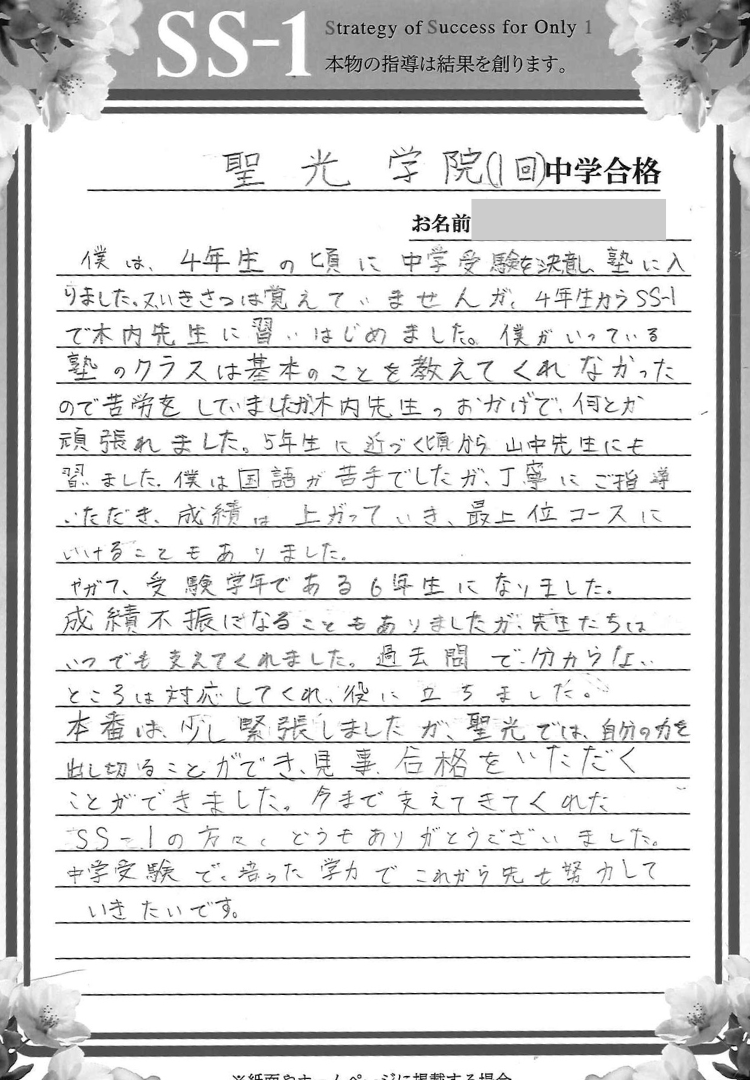 SS-1
Strategy of Success for Only 1
本物の指導は結果を創ります。
聖光学院(1回)中学合格
お名前
僕は、4年生の頃に中学受験を決意し、塾に入
りました。いきさつは覚えていませんが、4年生からSS-1
で木内先生に習いはじめました。僕がいっている
塾のクラスは基本のことを教えてくれなかった
ので苦労をしていましたが木内先生のおかげで、何とか
頑張れました。5年生に近づく頃から山中先生にも
習いました。僕は国語が苦手でしたが、丁寧にご指導
いただき、成績は上がっていき、最上位コースに
いけることもありました。
やがて、受験学年である6年生になりました。
成績不振になることもありましたが、先生たちは
いつでも支えてくれました。過去問で、分からない
ところは対応してくれ、役に立ちました。
本番は、少し緊張しましたが、聖光では、自分の力を
出し切ることができ、見事、合格をいただく
ことができました。今まで支えてきてくれた
SS-1の方々、どうもありがとうございました。
中学受験で、培った学力でこれから先も努力して
いきたいです。